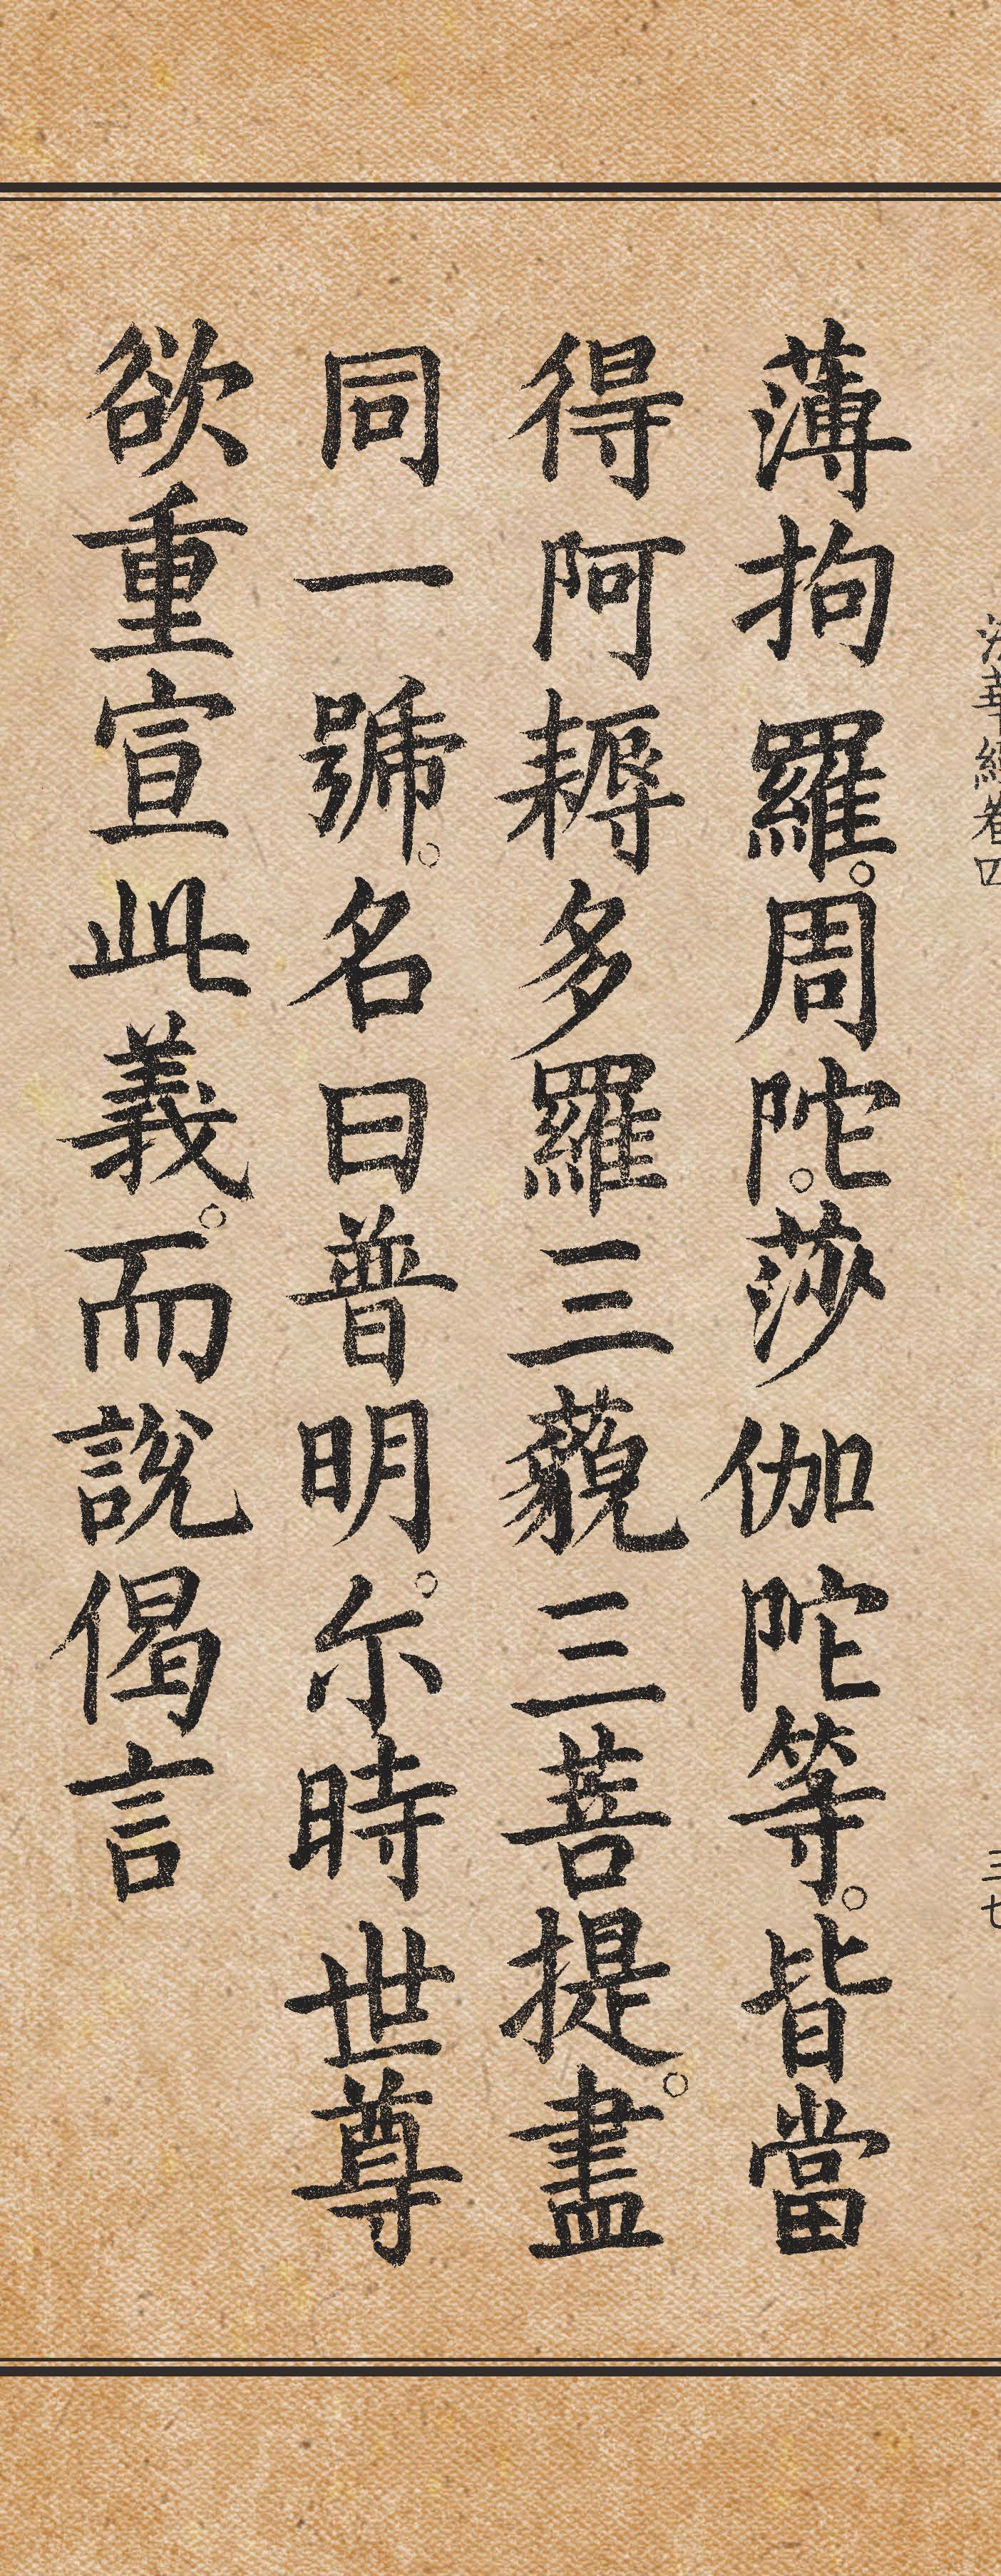 法華經卷四
三七
薄拘羅。周陀。莎伽陀等。皆當
得阿耨多羅三藐三菩提。盡
同一號。名曰普明。尒時世尊
欲重宣此義。而說偈言